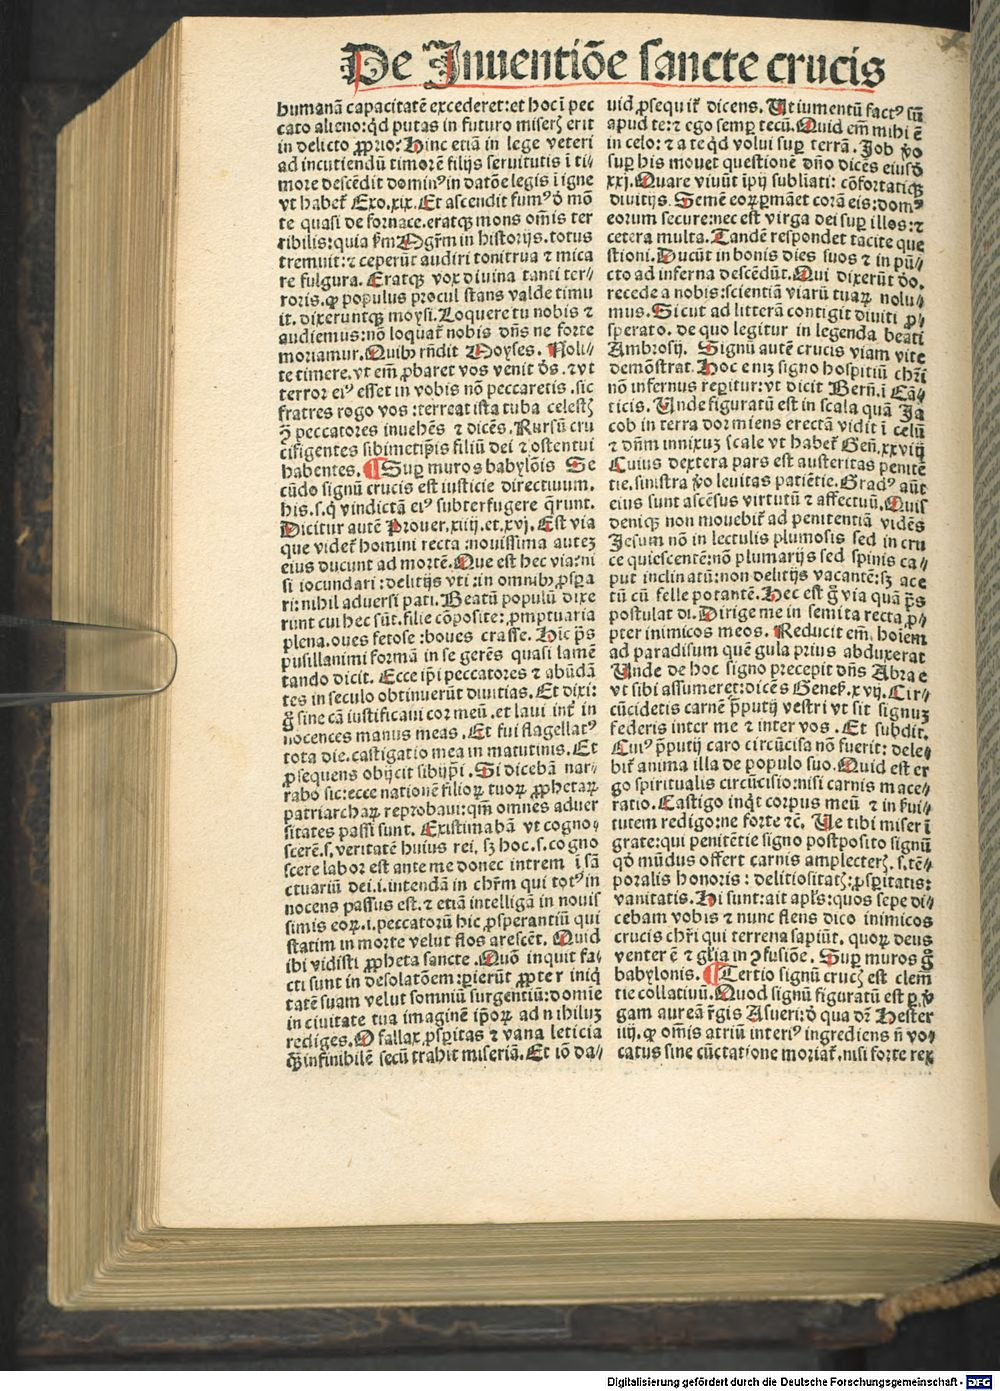 De Inuentiōe sancte crucis
humanā capacitatē excederet: et hoc ī pec
cato alieno: qd putas in futuro miserꝫ erit
in delicto ꝓprio? Hinc etiā in lege veteri
ad incutiendū timorē filijs seruitutis ī ti-
more descēdit dominꝰ in datōe legis ī igne
vt habet᷑ Exo.xix. Et ascendit fumꝰ d̄ mō
te quasi de fornace. eratqꝫ mons om̄is ter
ribilis: quia in historijs. totus
tremuit: ⁊ ceperūt audiri tonitrua ⁊ mica
re fulgura. Eratqꝫ vox diuina tanti ter-
roris. ꝙ populus procul stans valde timu
it. dixeruntqꝫ moysi. Loquere tu nobis ⁊
audiemus: nō loquat᷑ nobis dn̄s ne forte
moriamur. Quibꝰ rn̄dit Moyses. Noli-
te timere. vt em̄ ꝓbaret vos venit d̄s. ⁊ vt
terror eiꝰ esset in vobis nō peccaretis. sic
fratres rogo vos: terreat ista tuba celestꝫ
ꝯ peccatores inuehēs ⁊ dicēs. Rursū cru
cifigentes sibimetip̄is filiū dei ⁊ ostentui
habentes. ¶ Suꝑ muros babylōis Se
cūdo signū crucis est iusticie directiuum.
his.s.q̄ vindictā eiꝰ subterfugere q̄runt.
Dicitur autē Prouer.xiiij.et.xvj. Est via
que videt᷑ homini recta: nouissima auteꝫ
eius ducunt ad mortē. Que est hec via: ni
si iocundari: delitijs vti: in omnibꝰ ꝓspa
ri: nihil aduersi pati. Beatū populū dixe
runt cui hec sūt. filie cōposite: ꝓmptuaria
plena. oues fetose: boues crasse. Hic p̄s
pusillanimi formā in se gerēs quasi lamē
tando dicit. Ecce ip̄i peccatores ⁊ abūdā
tes in seculo obtinuerūt diuitias. Et dixi:
g̊ sine cā iustificaui cor meū. et laui int᷑ in
nocences manus meas. Et fui flagellatꝰ
tota die. castigatio mea in matutinis. Et
ꝓsequens obijcit sibijp̄i. Si dicebā nar-
rabo sic: ecce nationē filioꝝ tuoꝝ ꝓphetaꝝ
patriarchaꝝ reprobaui: qm̄ omnes aduer
sitates passi sunt. Existimabā vt cogno-
scerē.s. veritatē huius rei, sꝫ hoc.s.cogno
scere labor est ante me donec intrem ī sā
ctuariū dei.i.intendā in chr̄m qui totꝰ in
nocens passus est. ⁊ etiā intelligā in nouis
simis eoꝝ.i.peccatorū hic ꝓsperantiū qui
statim in morte velut flos arescēt. Quid
ibi vidisti ꝓpheta sancte. Quō inquit fa-
cti sunt in desolatōem: perierūt ꝓpter iniq̄
tatē suam velut somniū surgentiū: domie
in ciuitate tua imaginē ip̄oꝝ ad nihiluꝫ
rediges. O fallax ꝓsperitas ⁊ vana leticia
infinibilē secū trahit miseriā. Et iō da-
uid ꝓsequit᷑ dicens. Ut iumentū factꝰ sū
apud te: ⁊ ego semꝑ tecū. Quid em̄ mihi ē
in celo: ⁊ a te qd volui suꝑ terrā. Job v̄o
suꝑ his mouet questionē dn̄o dicēs eiusdē
xxj. Quare viuūt īpij subliati: cōfortatiqꝫ
diuitijs. Semē eoꝝ ꝑmāet corā eis: domꝰ
eorum secure: nec est virga dei suꝑ illos: ⁊
cetera multa. Tandē respondet tacite que
stioni. Ducūt in bonis dies suos ⁊ in pū-
cto ad inferna descēdūt. Qui dixerūt do.
recede a nobis: scientiā viarū tuaꝝ nolu-
mus. Sicut ad litterā contigit diuiti ꝓ-
sperato. de quo legitur in legenda beati
Ambrosij. Signū autē crucis viam vite
demōstrat. Hoc enīꝫ signo hospitiū chr̄i
nō infernus reperitur: vt dicit Bern̄.ī Cā-
ticis. Unde figuratū est in scala quā Ja
cob in terra dormiens erectā vidit ī celū
⁊ dn̄m innixuꝫ scale vt habet᷑ Gen̄.xxviij
Cuius dextera pars est austeritas penitē
tie. sinistra v̄o leuitas patiētie. Gradꝰ aūt
eius sunt ascēsus virtutū ⁊ affectuū. Quis
deniqꝫ non mouebit᷑ ad penitentiā vidēs
Jesum nō in lectulis plumosis sed in cru
ce quiescentē: nō plumarijs sed spinis ca-
put inclinatū: non delitijs vacantē: sꝫ ace
tū cū felle potantē. Hec est g̊ via quā p̄s
postulat di. Dirige me in semita recta ꝓ-
pter inimicos meos. Reducit em̄ hoīem
ad paradisum quē gula prius abduxerat
Unde de hoc signo precepit dn̄s Abrae
vt sibi assumeret: dicēs Genes̄.xvij. Cir-
cūcidetis carnē p̄putij vestri vt sit signuꝫ
federis inter me ⁊ inter vos. Et subdit.
Cuiꝰ p̄putij caro circūcisa nō fuerit: dele-
bit᷑ anima illa de populo suo. Quid est er
go spiritualis circūcisio: nisi carnis mace-
ratio. Castigo inqt corpus meū ⁊ in s̄ui-
tutem redigo: ne forte ⁊c̄. Ue tibi miser ī
grate: qui penitētie signo postposito signū
qd̄ mūdus offert carnis amplecterꝫ.s.tē-
poralis honoris: delitiositatꝫ: ꝓsperitatis:
vanitatis. Hi sunt: ait apl̄s: quos sepe di-
cebam vobis ⁊ nunc flens dico inimicos
crucis chr̄i qui terrena sapiūt. quoꝝ deus
venter ē ⁊ gl̄ia in ꝯfusiōe. Suꝑ muros g̊
babylonis. ¶ Tertio signū crucꝫ est clem̄
tie collatiuū. Quod signū figuratū est ꝑ v̄
gam aureā r̄gis Asueri: d̄ qua dr̄ Hester
iiij. ꝙ om̄is atriū interiꝰ ingrediens n̄ vo-
catus sine cūctatione moriat᷑. nisi forte rex
Digitalisierung gefördert durch die Deutsche Forschungsgemeinschaft - DFG